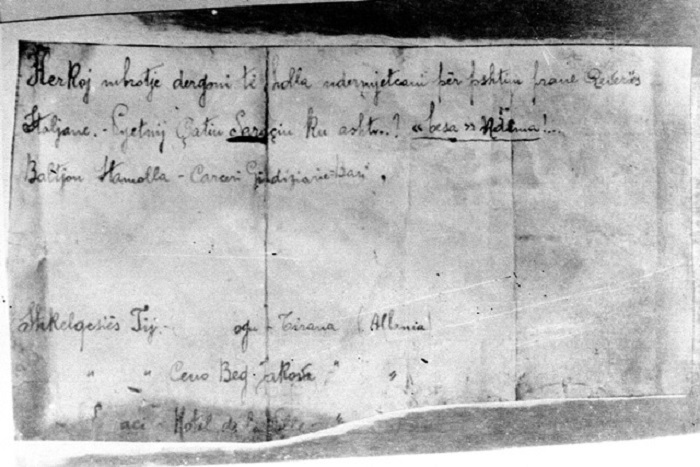 Herkoj mbrotje dergoni të holla ndermjetcani për pshtim pranë Qeverës
Italjane. - Pyetnij Çatin Saraçin ku asht...? « besa » Ndëma!...
Baltjon Stamolla - Carceri Giudiziarie - Bari.
Shkelqesiës Tij. - ogu - Tirana (Albania)
" " Ceno Beg. "
aci - Hotel de "